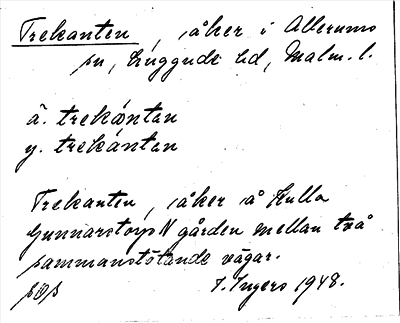 Trekanten, åker i Allerums
sn, Luggude hd, Malm. l.
ä. trekántan
y. trekántan
Trekanten, åker å Kulla
Gunnarstorps N gården mellan två
sammanstötande vägar.
I. Ingers 1948.